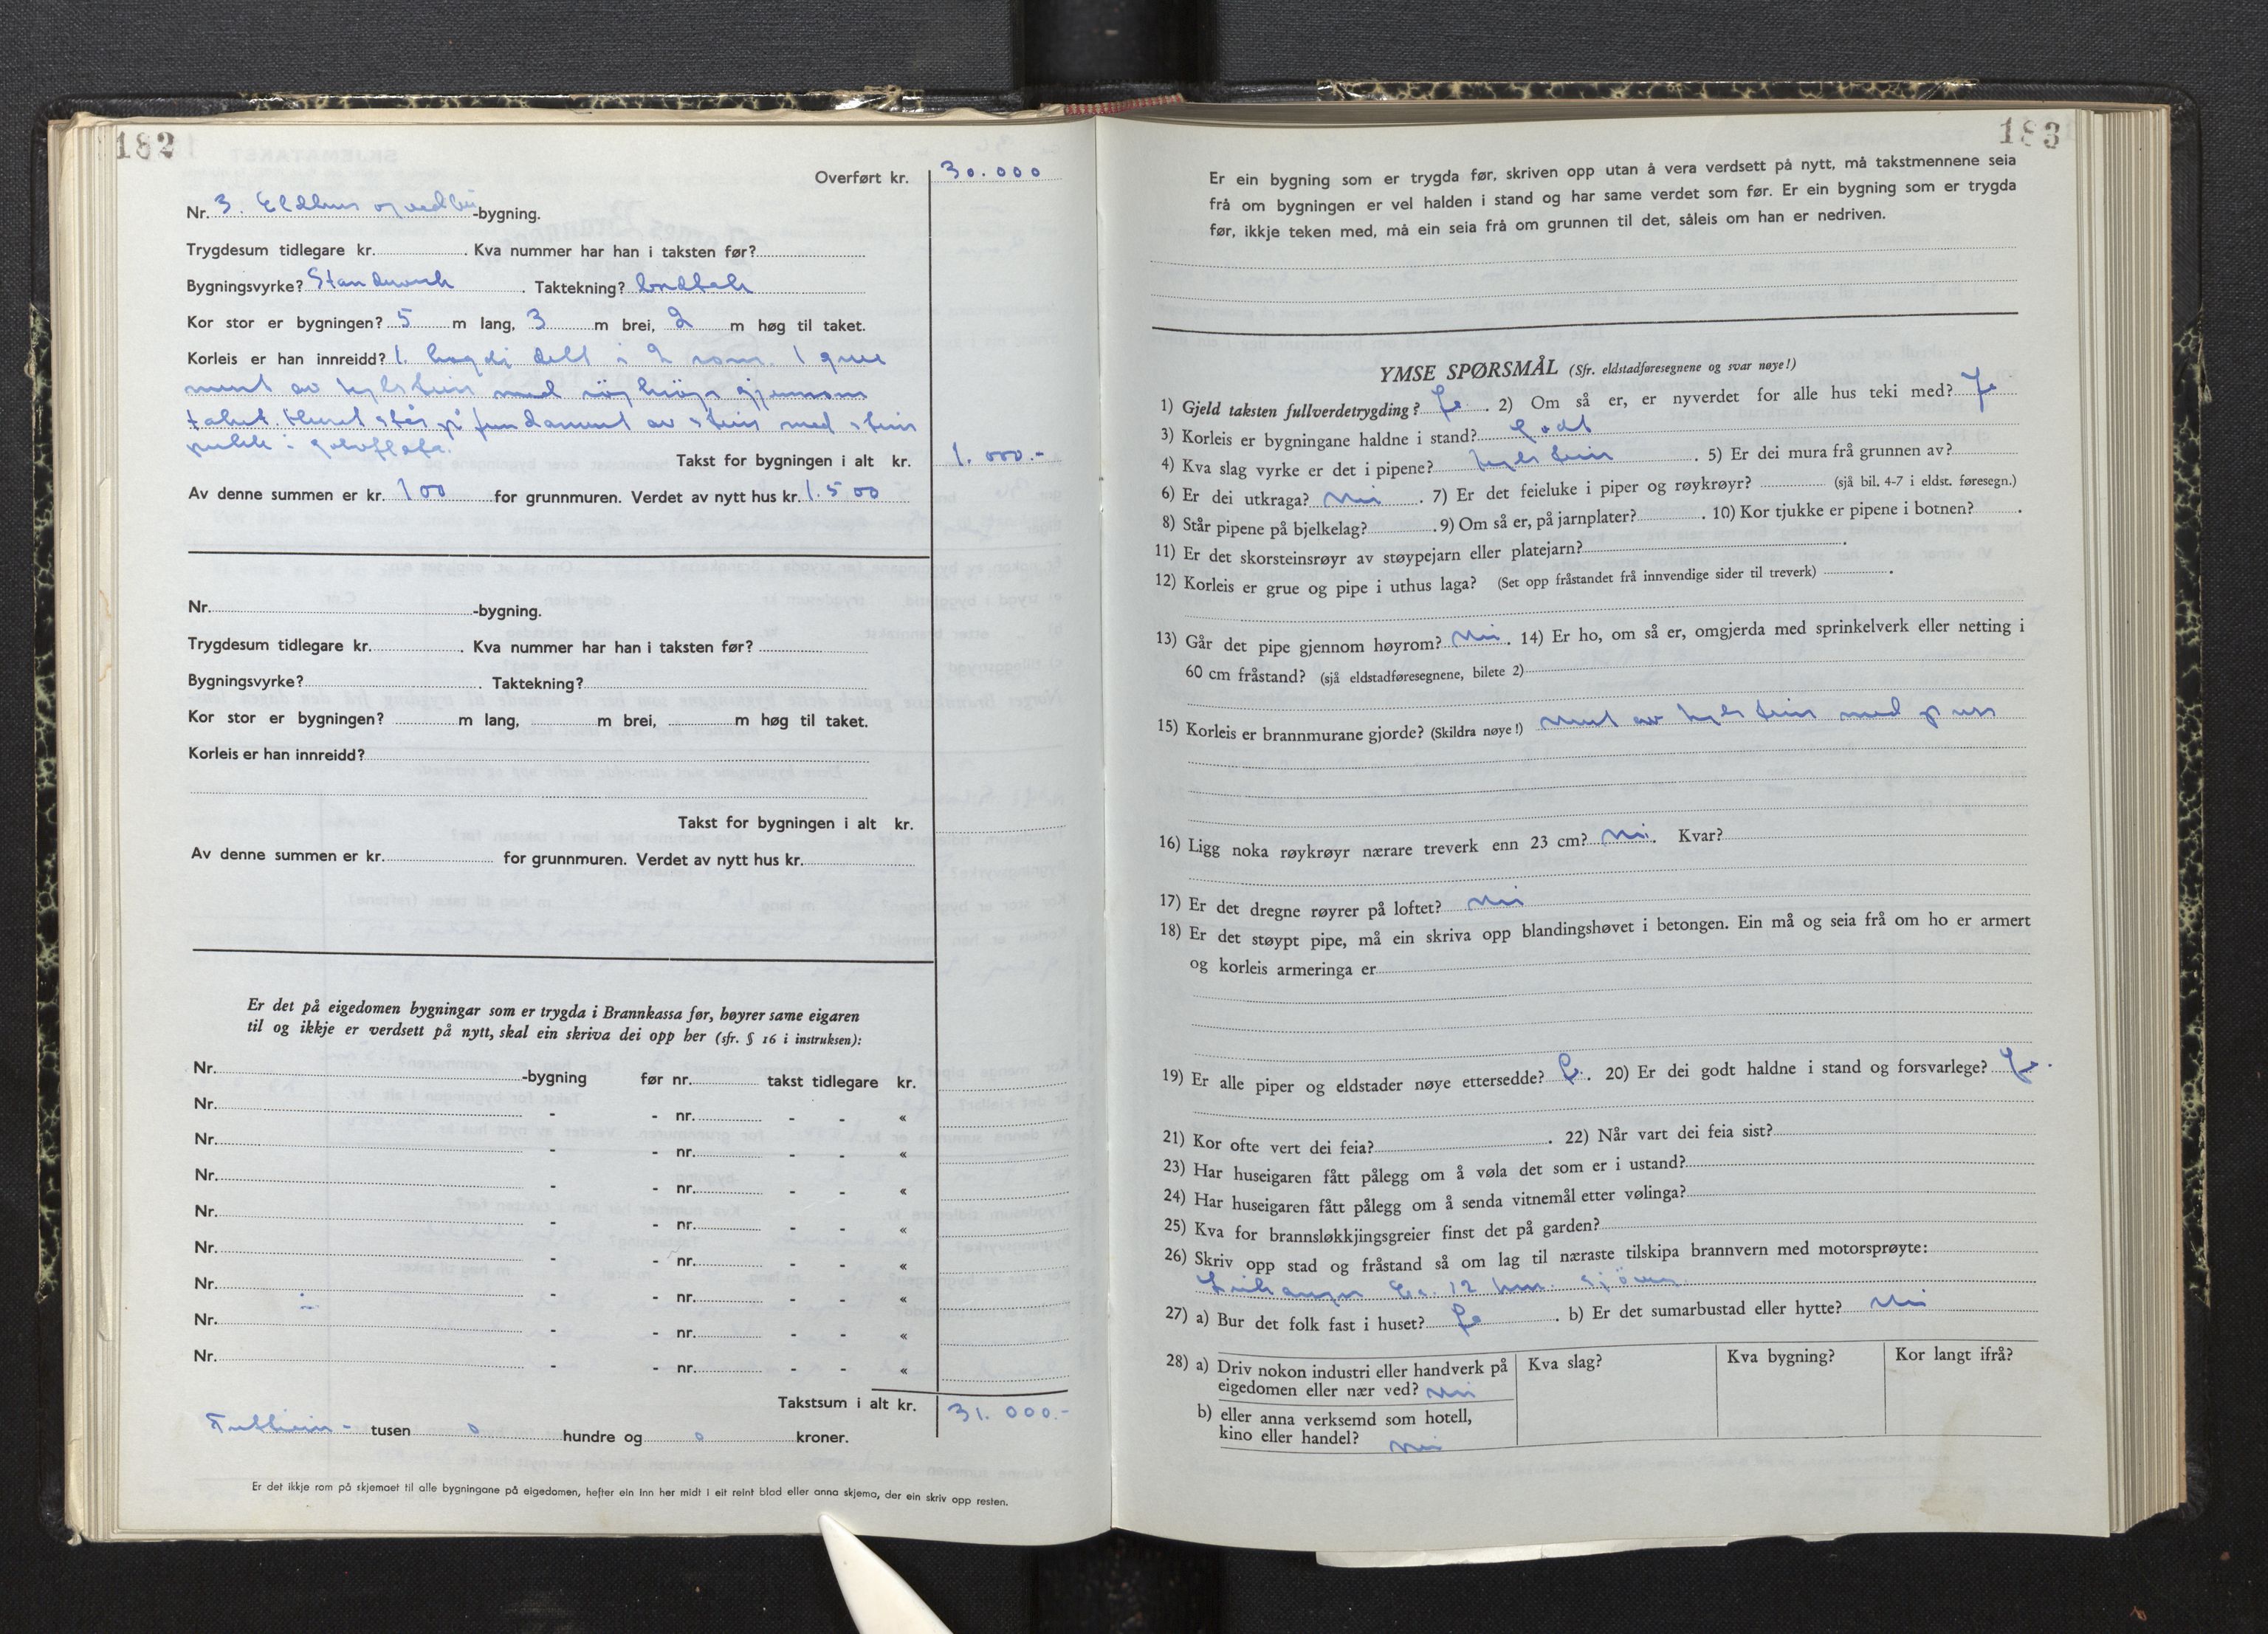 182
Overført kr. 30.000
Nr. 3. Eldhus og vedbu -bygning.
Trygdesum tidlegare kr. . Kva nummer har han i taksten før?
Bygningsvyrke? Standarverk . Taktekning? bordtak
Kor stor er bygningen? 5 m lang, 3 m brei, 2 m høg til taket.
Korleis er han innreidd? 1. høgdi delt i 2 rom. 1 grue
murt av hylstein med röykröyr gjennom
taket. Huset står på fundament av stein med stein
i golvflata.
Takst for bygningen i alt kr. 1.000.-
Av denne summen er kr. 100 for grunnmuren. Verdet av nytt hus kr. 1.500
Nr. -bygning.
Trygdesum tidlegare kr. . Kva nummer har han i taksten før?
Bygningsvyrke? . Taktekning?
Kor stor er bygningen? m lang, m brei, m høg til taket.
Korleis er han innreidd?
Takst for bygningen i alt kr.
Av denne summen er kr. for grunnmuren. Verdet av nytt hus kr.
Er det på eigedomen bygningar som er trygda i Brannkassa før, høyrer same eigaren
til og ikkje er verdsett på nytt, skal ein skriva dei opp her (sfr. § 16 i instruksen):
Nr. -bygning før nr. takst tidlegare kr.
Nr. - - nr. - - «
Nr. - - nr. - - «
Nr. - - nr. - - «
Nr. - - nr. - - «
Nr. - - nr. - - «
Nr. - - nr. - - «
Nr. - - nr. - - «
Nr. - - nr. - - «
Takstsum i alt kr. 31.000.-
Trettiein - tusen 0 hundre og 0 kroner.
Er det ikkje rom på skjemaet til alle bygningane på eigedomen, hefter ein inn her midt i eit reint blad eller anna skjema, der ein skriv opp resten.
183
Er ein bygning som er trygda før, skriven opp utan å vera verdsett på nytt, må takstmennene seia
frå om bygningen er vel halden i stand og har same verdet som før. Er ein bygning som er trygda
før, ikkje teken med, må ein seia frå om grunnen til det, såleis om han er nedriven.
YMSE SPØRSMÅL (Sfr. eldstadføresegnene og svar nøye!)
1) Gjeld taksten fullverdetrygding? Ja . 2) Om så er, er nyverdet for alle hus teki med? Ja
3) Korleis er bygningane haldne i stand? Godt
4) Kva slag vyrke er det i pipene? hylstein . 5) Er dei mura frå grunnen av?
6) Er dei utkraga? Nei . 7) Er det feieluke i piper og røykrøyr? (sjå bil. 4-7 i eldst. føresegn.)
8) Står pipene på bjelkelag? . 9) Om så er, på jarnplater? . 10) Kor tjukke er pipene i botnen? .
11) Er det skorsteinsrøyr av støypejarn eller platejarn? .
12) Korleis er grue og pipe i uthus laga? (Set opp fråstandet frå innvendige sider til treverk) .
13) Går det pipe gjennom høyrom? Nei . 14) Er ho, om så er, omgjerda med sprinkelverk eller netting i
60 cm fråstand? (sjå eldstadføresegnene, bilete 2)
15) Korleis er brannmurane gjorde? (Skildra nøye!) Murt av hylstein med puss
16) Ligg noka røykrøyr nærare treverk enn 23 cm? Nei. Kvar?
17) Er det dregne røyrer på loftet? Nei
18) Er det støypt pipe, må ein skriva opp blandingshøvet i betongen. Ein må og seia frå om ho er armert
og korleis armeringa er
19) Er alle piper og eldstader nøye ettersedde? Ja. . 20) Er dei godt haldne i stand og forsvarlege? Ja.
21) Kor ofte vert dei feia? . 22) Når vart dei feia sist?
23) Har huseigaren fått pålegg om å vøla det som er i ustand?
24) Har huseigaren fått pålegg om å senda vitnemål etter vølinga?
25) Kva for brannsløkkjingsgreier finst det på garden?
26) Skriv opp stad og fråstand så om lag til næraste tilskipa brannvern med motorsprøyte:
Leikanger Ca. 12 km. sjöveg
27) a) Bur det folk fast i huset? Ja . b) Er det sumarbustad eller hytte? Nei
28) a) Driv nokon industri eller handverk på eigedomen eller nær ved? Nei
Kva slag? Kva bygning? Kor langt ifrå?
b) eller anna verksemd som hotell,
kino eller handel? Nei